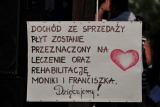 DOCHÓD ZE SPRZEDAŻY
PŁYT ZOSTANIE
PRZEZNACZONY NA
LECZENIE ORAZ
REHABILITACJĘ
MONIKI I FRANCISZKA.
Dziękujemy!